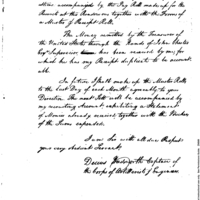 also accompanied by the Pay Roll made up for the
Month at this Garrison together with the Forms of
a Muster & Receipt Roll.
The Money remitted by the Treasurer of
the United States through the hands of John Chester
Esqr Supervisor has been received by me, for
which he has my Receipt duplicate to be account-
able.
In future I shall make up the Muster Rolls
to the last Day of each Month agreeably to your
Direction. The next Sett will be accompanied by
my recruiting Account, exhibiting a Statement
of Monies already received, together with the Number
of the Term expended.
I am Sir with all due Respect
your very obedient Servant
Captain of
the Corps of Artillerists & Engineers